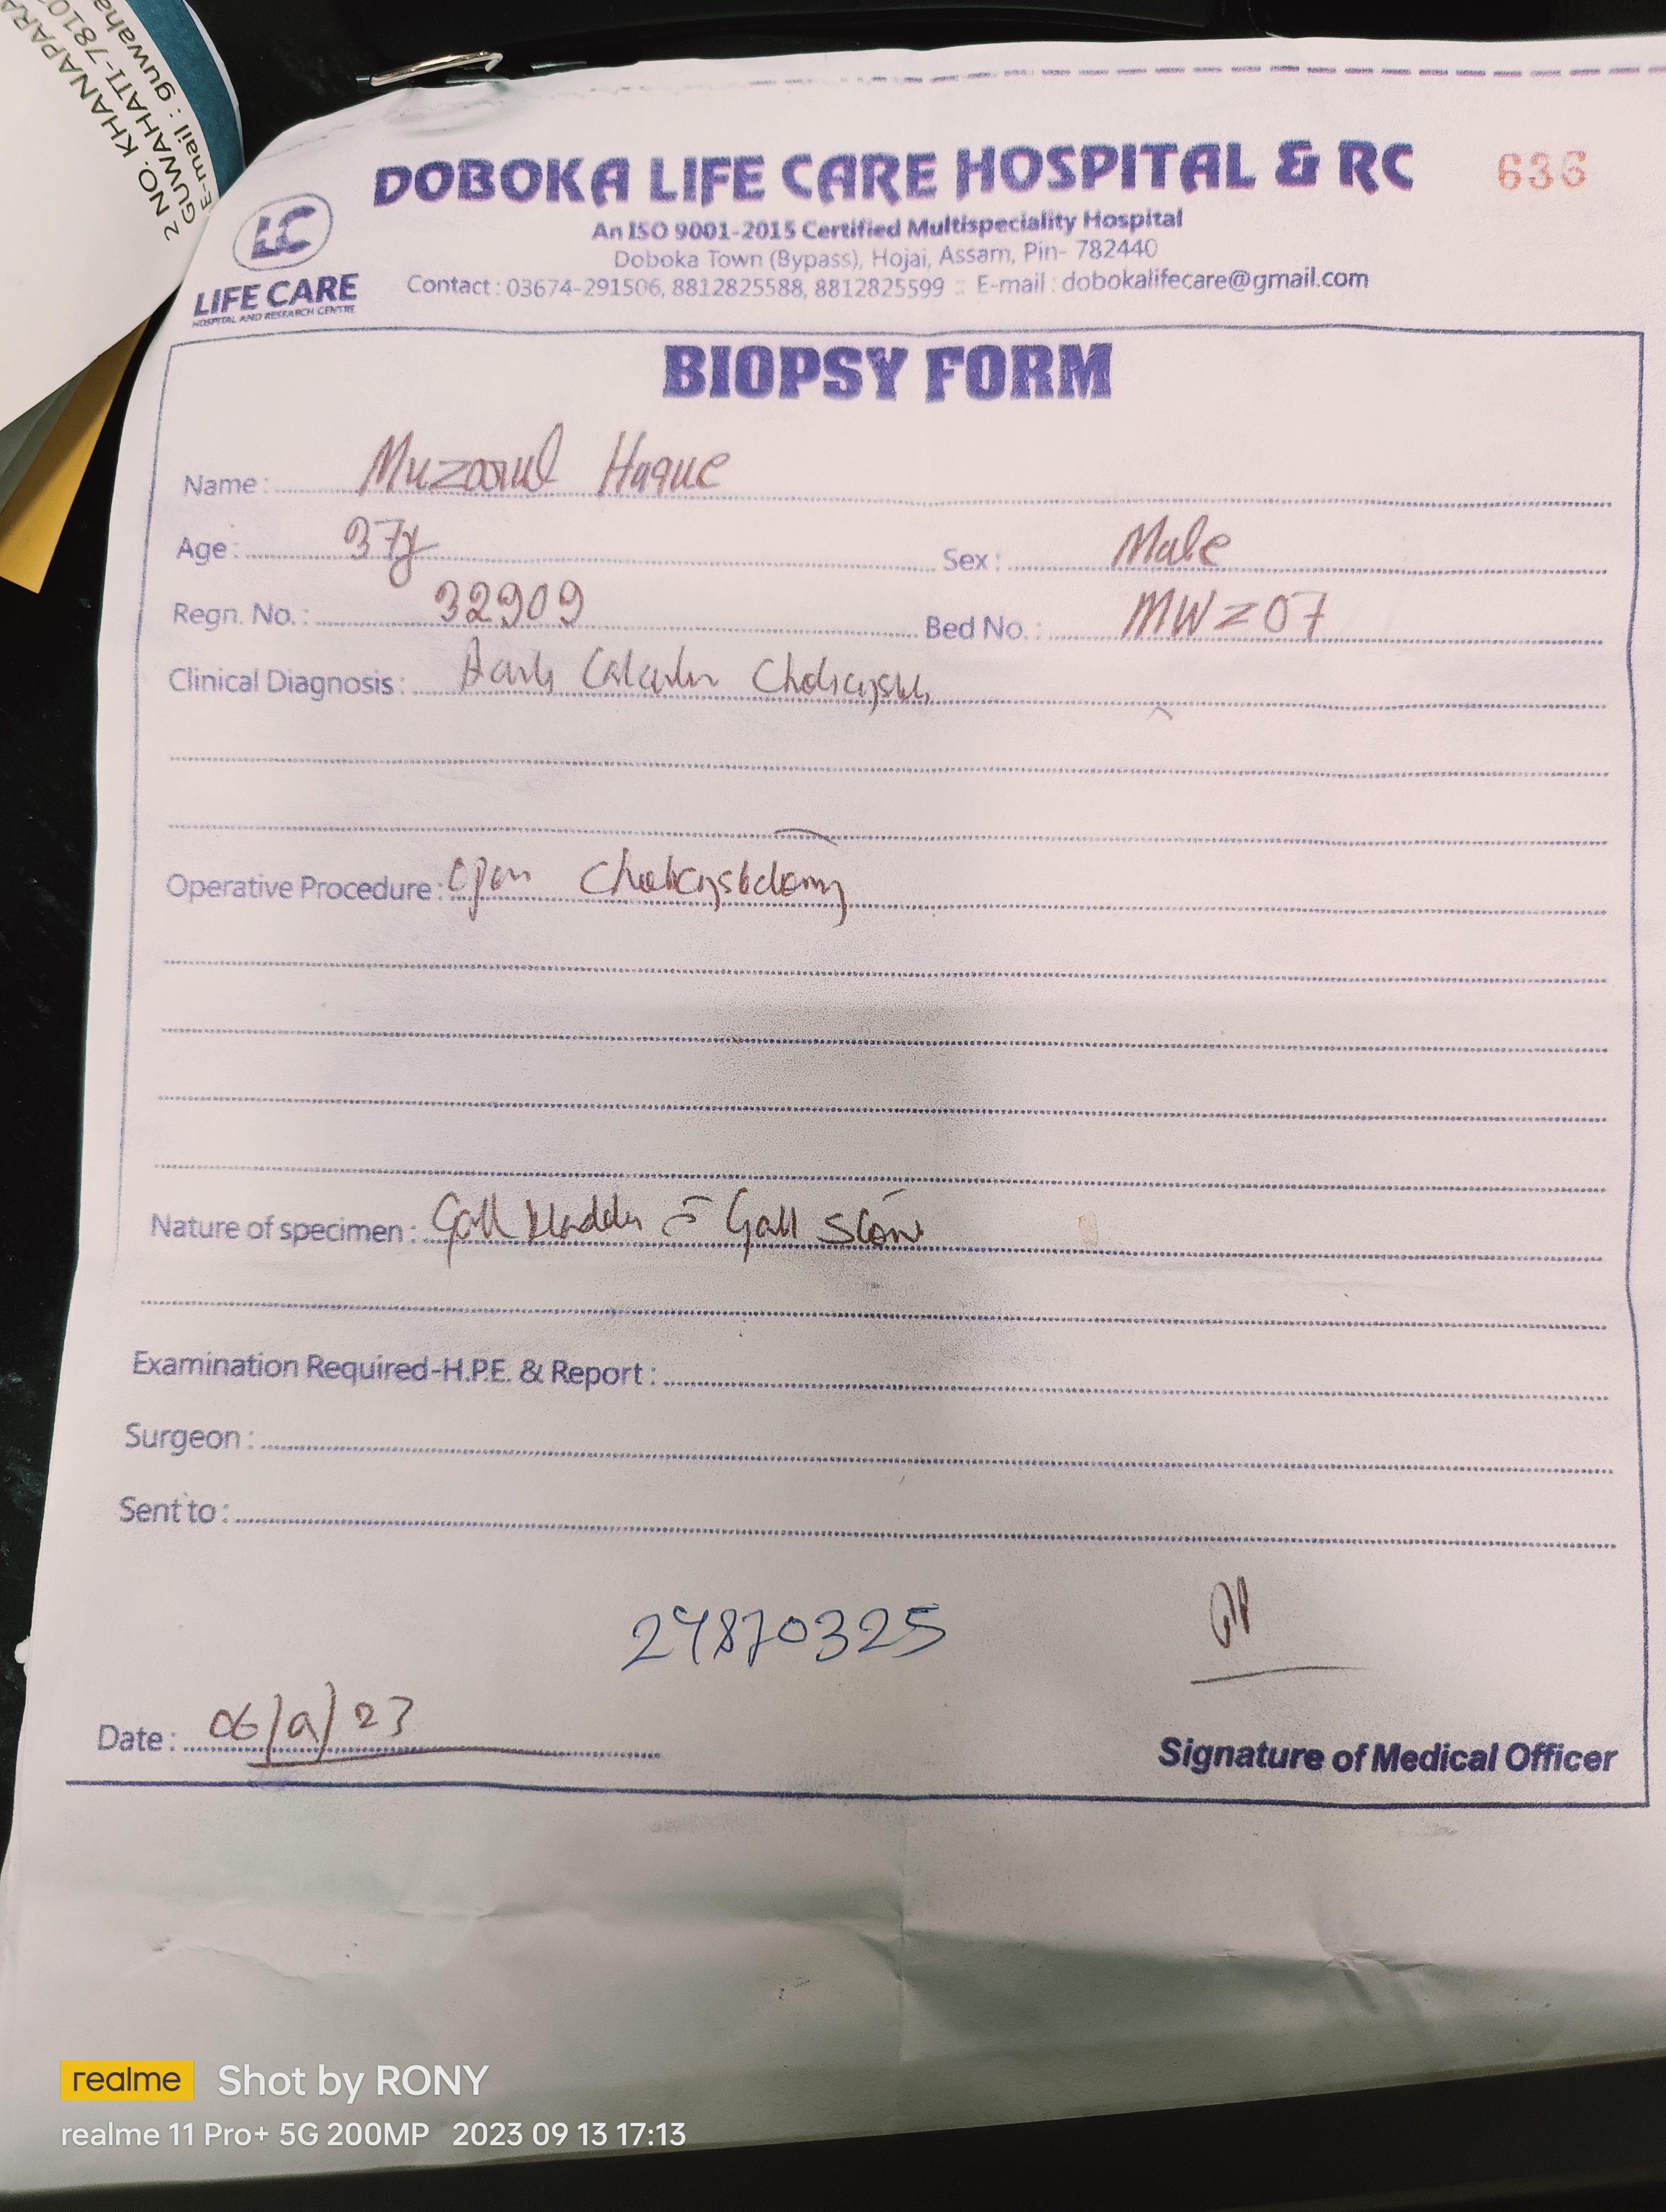 2 NO. KHANAPARA
GUWAHATI-7810
E-mail : guwaha
DOBOKA LIFE CARE HOSPITAL & RC
636
An ISO 9001-2015 Certified Multispeciality Hospital
Doboka Town (Bypass), Hojai, Assam, Pin- 782440
Contact : 03674-291506, 8812825588, 8812825599 :: E-mail : dobokalifecare@gmail.com
LC
LIFE CARE
HOSPITAL AND RESEARCH CENTRE
BIOPSY FORM
Name : Haque
Age : 37y Sex : Male
Regn. No. : 32909 Bed No. : MW=07
Clinical Diagnosis :
Operative Procedure : Open
Nature of specimen : Gall bladder c̄ Gall stone
Examination Required-H.P.E. & Report :
Surgeon :
Sent to :
24870325
Date : 06/9/23
Signature of Medical Officer
realme Shot by RONY
realme 11 Pro+ 5G 200MP 2023 09 13 17:13